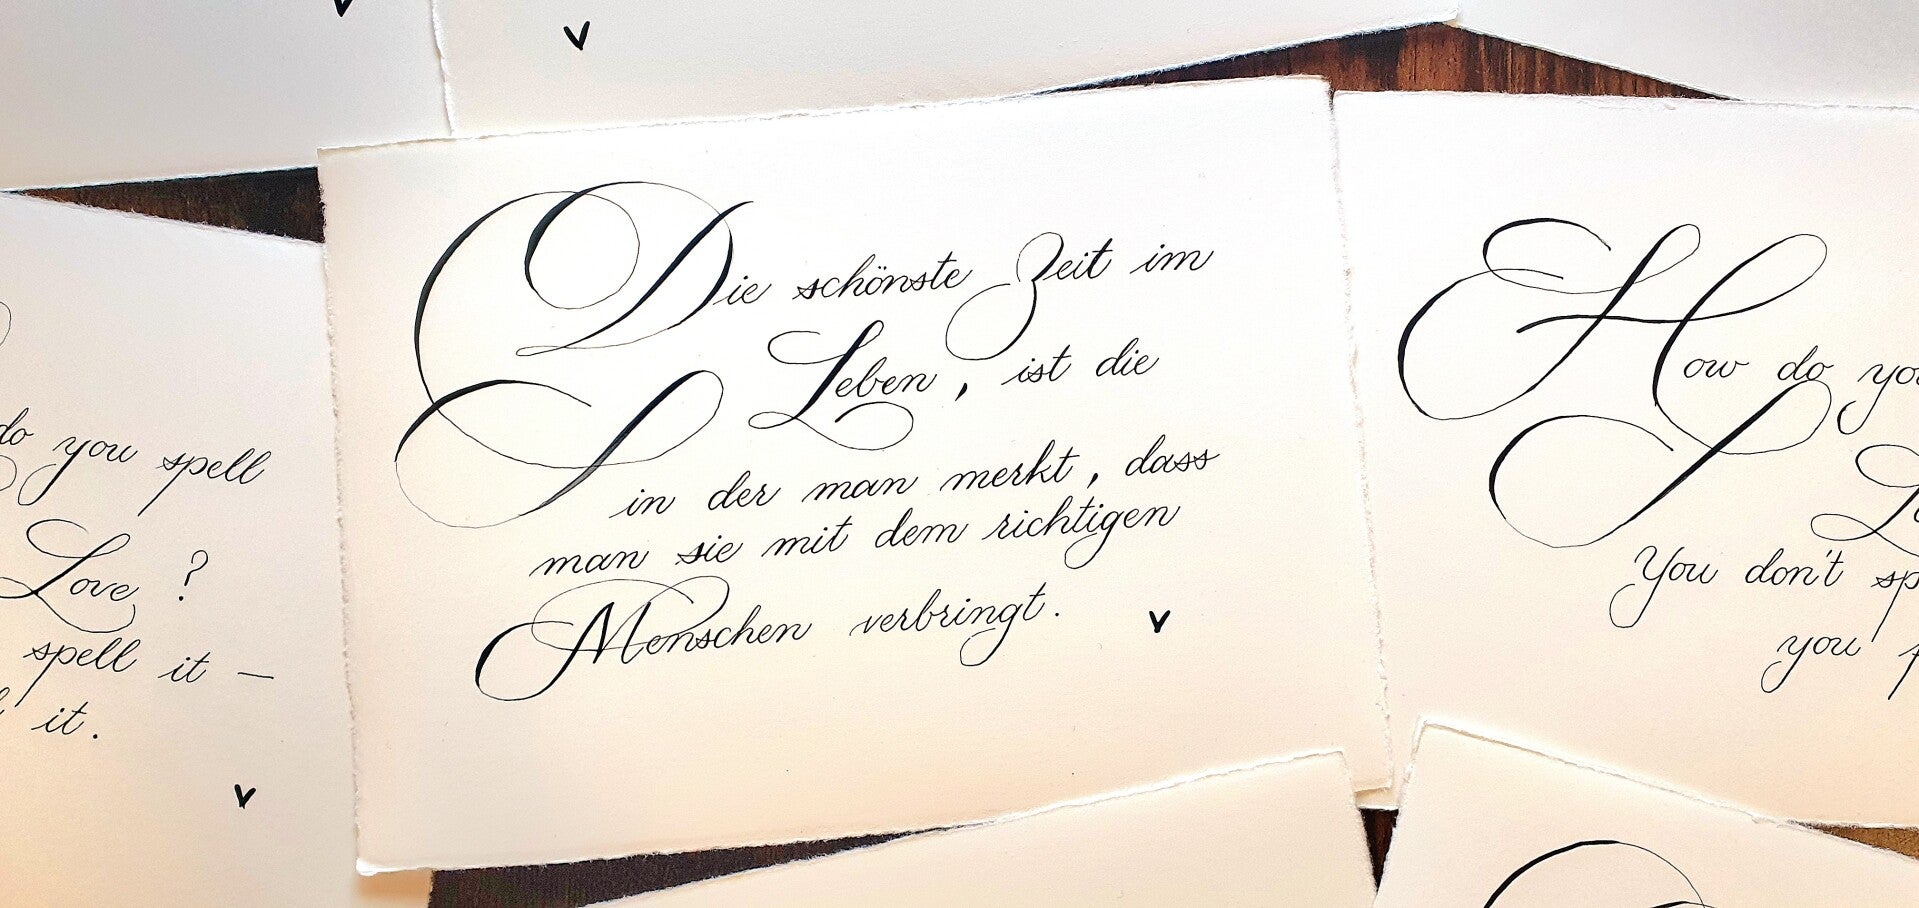 do you spell
Love ?
spell it –
it.
Die schönste Zeit im
Leben, ist die
in der man merkt, dass
man sie mit dem richtigen
Menschen verbringt.
How do you
You don't
you